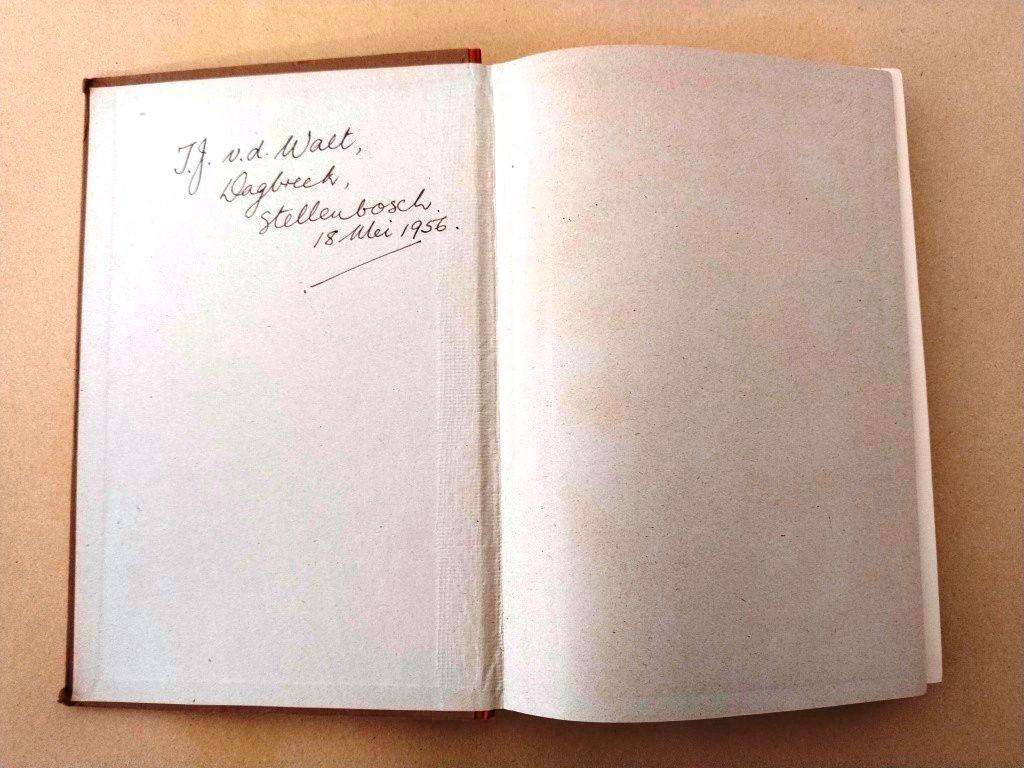 T.J. v.d. Walt,
Dagbreek,
Stellenbosch.
18 Mei 1956.